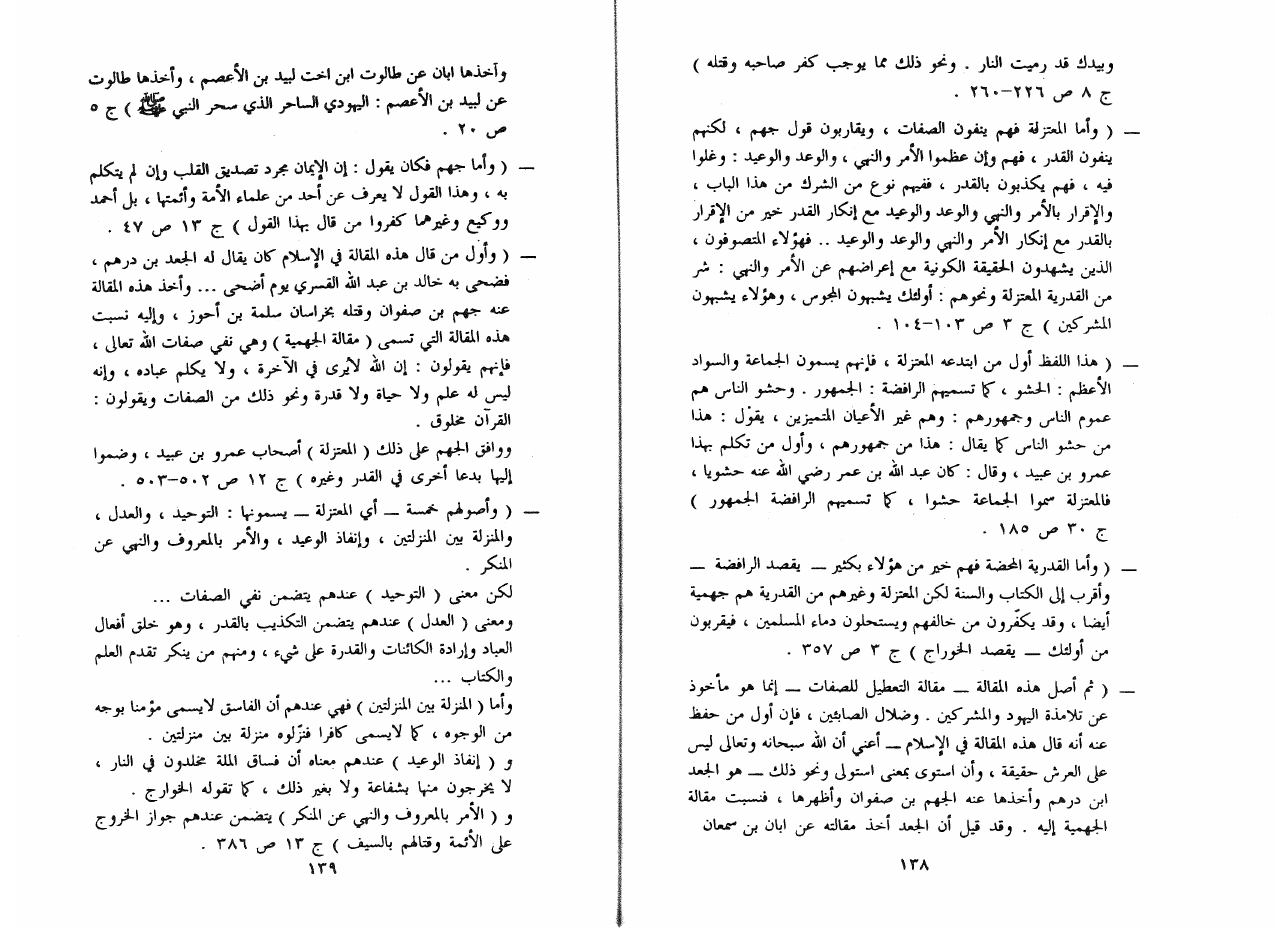 وبيدك قد رميت النار . ونحو ذلك مما يوجب كفر صاحبه وقتله )
ج ٨ ص ٢٢٦–٢٦٠ .
— ( وأما المعتزلة فهم ينفون الصفات ، ويقاربون قول جهم ، لكنهم
ينفون القدر ، فهم وإن عظموا الأمر والنهي ، والوعد والوعيد : وغلوا
فيه ، فهم يكذبون بالقدر ، ففيهم نوع من الشرك من هذا الباب ،
والإقرار بالأمر والنهي والوعد والوعيد مع إنكار القدر خير من الإقرار
بالقدر مع إنكار الأمر والنهي والوعد والوعيد .. فهؤلاء المتصوفون ،
الذين يشهدون الحقيقة الكونية مع إعراضهم عن الأمر والنهي : شر
من القدرية المعتزلة ونحوهم : أولئك يشبهون المجوس ، وهؤلاء يشبهون
المشركين ) ج ٣ ص ١٠٣–١٠٤ .
— ( هذا اللفظ أول من ابتدعه المعتزلة ، فإنهم يسمون الجماعة والسواد
الأعظم : الحشو ، كما تسميهم الرافضة : الجمهور . وحشو الناس هم
عموم الناس وجمهورهم : وهم غير الأعيان المتميزين ، يقول : هذا
من حشو الناس كما يقال : هذا من جمهورهم ، وأول من تكلم بهذا
عمرو بن عبيد ، وقال : كان عبد الله بن عمر رضي الله عنه حشويا ،
فالمعتزلة سموا الجماعة حشوا ، كما تسميهم الرافضة الجمهور )
ج ٣٠ ص ١٨٥ .
— ( وأما القدرية المحضة فهم خير من هؤلاء بكثير — يقصد الرافضة —
وأقرب إلى الكتاب والسنة لكن المعتزلة وغيرهم من القدرية هم جهمية
أيضا ، وقد يكفّرون من خالفهم ويستحلون دماء المسلمين ، فيقربون
من أولئك — يقصد الخوراج ) ج ٣ ص ٣٥٧ .
— ( ثم أصل هذه المقالة — مقالة التعطيل للصفات — إنما هو مأخوذ
عن تلامذة اليهود والمشركين . وضلال الصابئين ، فإن أول من حفظ
عنه أنه قال هذه المقالة في الإسلام — أعني أن الله سبحانه وتعالى ليس
على العرش حقيقة ، وأن استوى بمعنى استولى ونحو ذلك — هو الجعد
ابن درهم وأخذها عنه الجهم بن صفوان وأظهرها ، فنسبت مقالة
الجهمية إليه . وقد قيل أن الجعد أخذ مقالته عن ابان بن سمعان
١٣٨
وآخذها ابان عن طالوت ابن اخت لبيد بن الأعصم ، وأخذها طالوت
عن لبيد بن الأعصم : اليهودي الساحر الذي سحر النبي ﷺ ) ج ٥
ص ٢٠ .
— ( وأما جهم فكان يقول : إن الإيمان مجرد تصديق القلب وإن لم يتكلم
به ، وهذا القول لا يعرف عن أحد من علماء الأمة وأئمتها ، بل أحمد
ووكيع وغيرهما كفروا من قال بهذا القول ) ج ١٣ ص ٤٧ .
— ( وأول من قال هذه المقالة في الإسلام كان يقال له الجعد بن درهم ،
فضحى به خالد بن عبد الله القسري يوم أضحى ... وأخذ هذه المقالة
عنه جهم بن صفوان وقتله بخراسان سلمة بن أحوز ، وإليه نسبت
هذه المقالة التي تسمى ( مقالة الجهمية ) وهي نفي صفات الله تعالى ،
فإنهم يقولون : إن الله لايُرى في الآخرة ، ولا يكلم عباده ، وإنه
ليس له علم ولا حياة ولا قدرة ونحو ذلك من الصفات ويقولون :
القرآن مخلوق .
ووافق الجهم على ذلك ( المعتزلة ) أصحاب عمرو بن عبيد ، وضموا
إليها بدعا أخرى في القدر وغيره ) ج ١٢ ص ٥٠٢–٥٠٣ .
— ( وأصولهم خمسة — أي المعتزلة — يسمونها : التوحيد ، والعدل ،
والمنزلة بين المنزلتين ، وإنفاذ الوعيد ، والأمر بالمعروف والنهي عن
المنكر .
لكن معنى ( التوحيد ) عندهم يتضمن نفي الصفات ...
ومعنى ( العدل ) عندهم يتضمن التكذيب بالقدر ، وهو خلق أفعال
العباد وإرادة الكائنات والقدرة على شيء ، ومنهم من ينكر تقدم العلم
والكتاب ...
وأما ( المنزلة بين المنزلتين ) فهي عندهم أن الفاسق لايسمى مؤمنا بوجه
من الوجوه ، كما لايسمى كافرا فنزّلوه منزلة بين منزلتين .
و ( إنفاذ الوعيد ) عندهم معناه أن فساق الملة مخلدون في النار ،
لا يخرجون منها بشفاعة ولا بغير ذلك ، كما تقوله الخوارج .
و ( الأمر بالمعروف والنهي عن المنكر ) يتضمن عندهم جواز الخروج
على الأئمة وقتالهم بالسيف ) ج ١٣ ص ٣٨٦ .
١٣٩